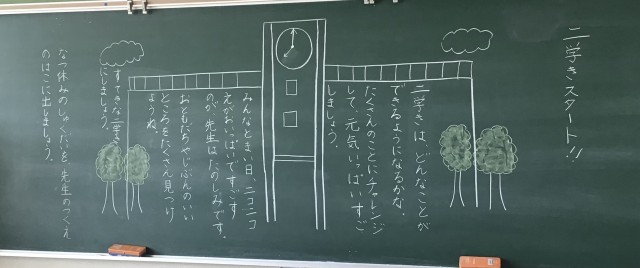 二学きスタート!!
二学きは、どんなことが
できるようになるかな。
たくさんのことにチャレンジ
して、元気いっぱいすご
しましょう。
みんなとまい日、ニコニコ
えがおいっぱいですごす
のが、先生はたのしみです。
おともだちやじぶんのいい
ところをたくさん見つけ
ようね。
すてきな二学き
にしましょう。
なつ休みのしゅくだいを、先生のつくえ
のはこに出しましょう。